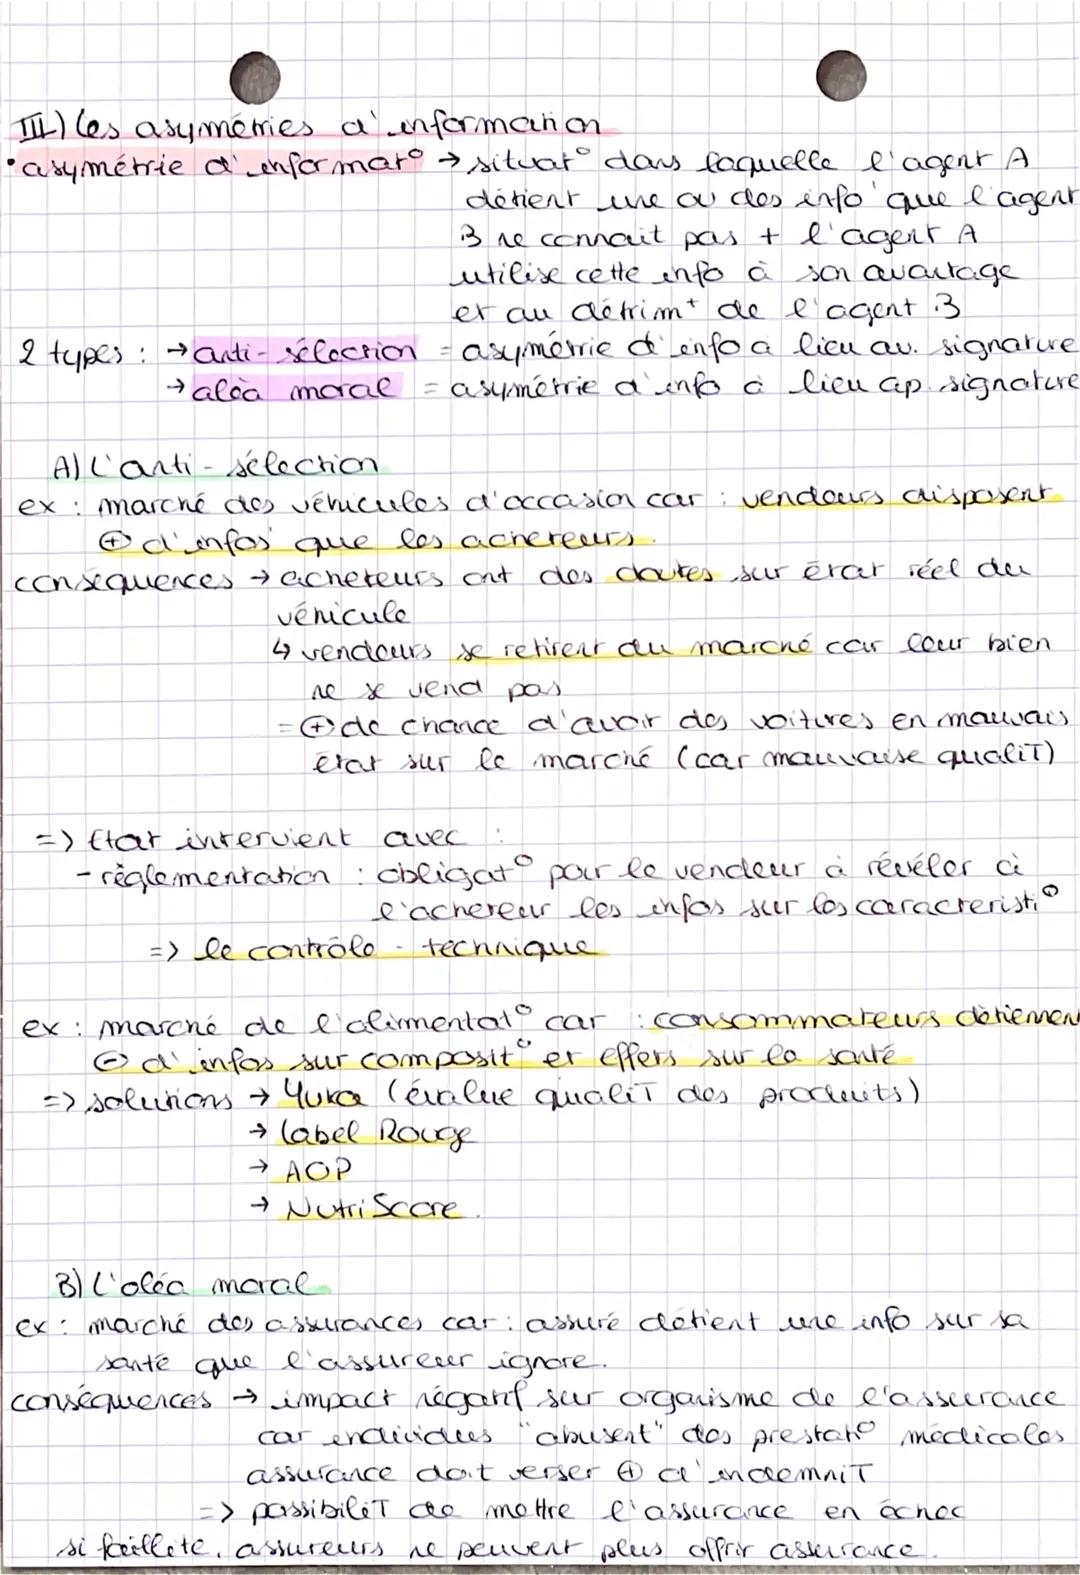 III) Les asymétries d'information
• asymétrie d'informat° → situat° dans laquelle l'agent A
détient une ou des info que l'agent
B ne connait pas + l'agent A
utilise cette info à son avantage
et au détrim^t de l'agent B
2 types : → anti-sélection = asymétrie d'info a lieu av. signature
→ aléa moral = asymétrie d'info a lieu ap. signature
A) L'anti-sélection
ex : marché des véhicules d'occasion car : vendeurs disposent
⊕ d'infos que les acheteurs.
conséquences → acheteurs ont des doutes sur état réel du
véhicule
↳ vendeurs se retirent du marché car leur bien
ne se vend pas
= ⊕ de chance d'avoir des voitures en mauvais
état sur le marché (car mauvaise qualiT)
=> Etat intervient avec :
- règlementation : obligat° pour le vendeur à révéler à
l'acheteur les infos sur les caracteristi°
=> le contrôle - technique
ex : marché de l'alimentat° car : consommateurs détiennen
⊖ d'infos sur composit° et effets sur la santé
=> solutions → Yuka (évalue qualiT des produits)
→ Label Rouge
→ AOP
→ NutriScore.
B) L'aléa moral
ex : marché des assurances car : assuré détient une info sur sa
santé que l'assureur ignore.
conséquences → impact négatif sur organisme de l'assurance
car individus "abusent" des prestat° médicales
assurance doit verser ⊕ d'indemniT
=> possibiliT de mettre l'assurance en échec
si faillite, assureurs ne peuvent plus offrir assurance.